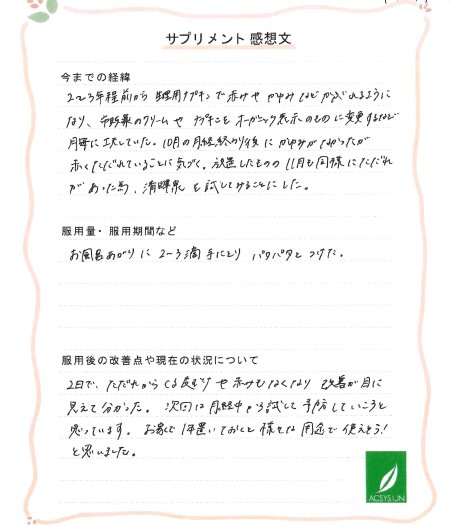 サプリメント感想文
今までの経緯
2〜3年程前から 生理用ナプキンで赤みや かゆみ などが出るように
なり、市販薬のクリームや ナプキンを オーガニック表示のものに変更するなど
月毎に工夫していた。10月の月経終わり後に かゆみがなかったが
赤くただれていることに気づく。放置したものの 11月も同様に ただれ
があった為、清輝泉を試してみることにした。
服用量・服用期間など
お風呂あがりに 2〜3滴 手にとり パタパタと つけた。
服用後の改善点や現在の状況について
2日で、ただれから くる 赤みもなくなり 改善が目に
見えて分かった。次回は月経中から試して 予防していこうと
思っています。お家に1本置いておくと 様々な 用途で 使えそう!
と思いました。
ACSYS UN